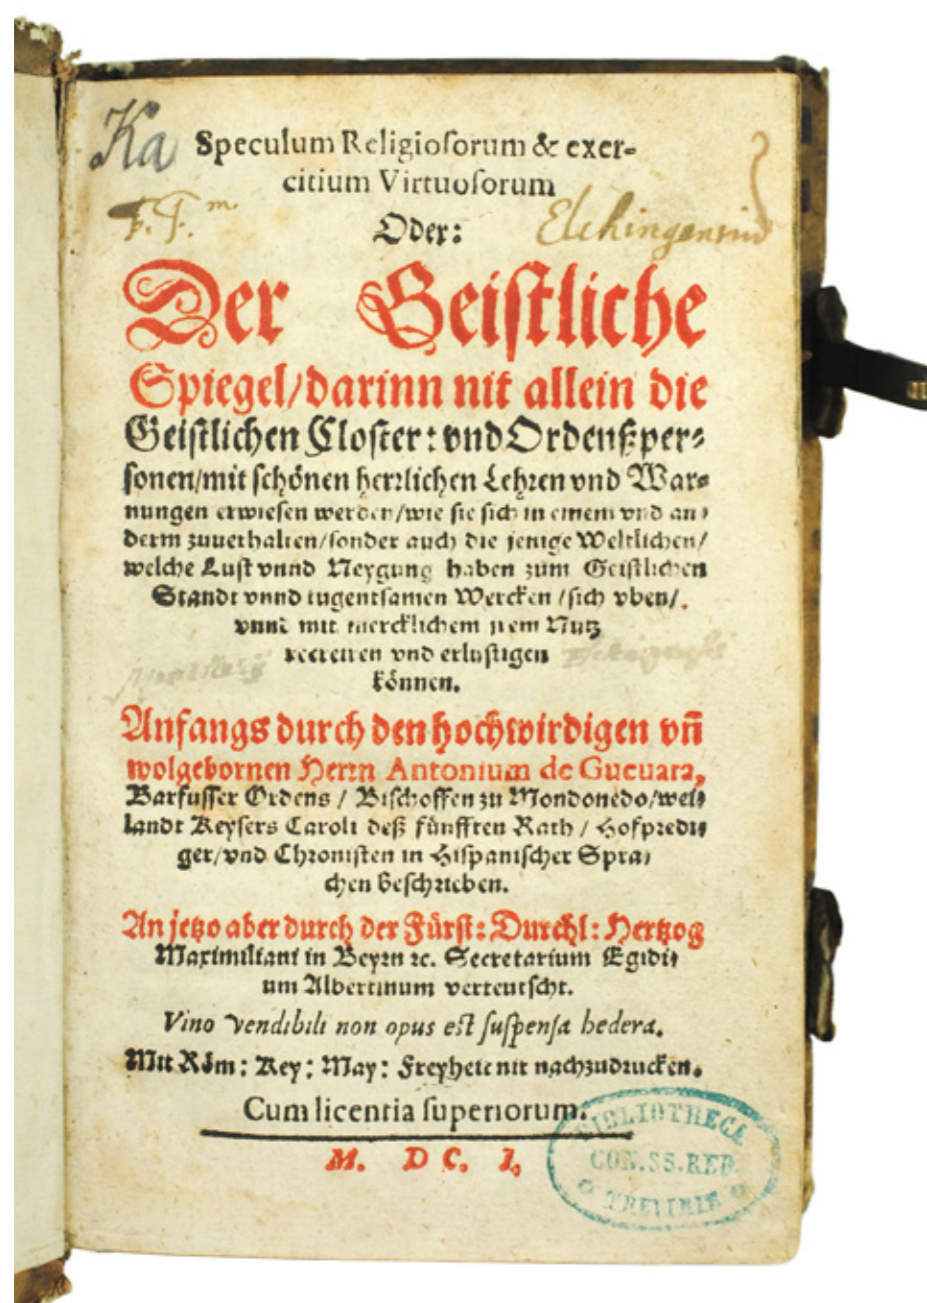 Ka
Speculum Religioſorum & exer-
citium Virtuoſorum
F. F. m.
Oder:
Elchingensis
Der Geiſtliche
Spiegel/darinn nit allein die
Geiſtlichen Cloſter: vnd Ordenßper-
ſonen/mit ſchönen herrlichen Lehren vnd War-
nungen erwieſen werden/wie ſie ſich in einem vnd an-
derm zuuerhalten/ſonder auch die jenige Weltlichen/
welche Luſt vnnd Neygung haben zum Geiſtlichen
Standt vnnd tugentſamen Wercken/ſich vben/
vnnd mit mercklichem jrem Nutz
recreiren vnd erluſtigen
können.
Anfangs durch den hochwirdigen vñ
wolgebornen Herrn Antonium de Gueuara,
Barfuſſer Ordens / Biſchoffen zu Mondonedo/wei-
landt Keyſers Caroli deß fünfften Rath / Hofpredi-
ger/vnd Chroniſten in Hiſpaniſcher Spra-
chen beſchrieben.
An jetzo aber durch der Fürſt: Durchl: Hertzog
Maximiliani in Beyrn ꝛc. Secretarium Egidi-
um Albertinum verteutſcht.
Vino vendibili non opus eſt ſuſpenſa hedera.
Mit Röm: Key: May: Freyheit nit nachzudrucken.
Cum licentia ſuperiorum.
M. DC. I.
BIBLIOTHECA
CON. SS. RED.
TREVIRIS